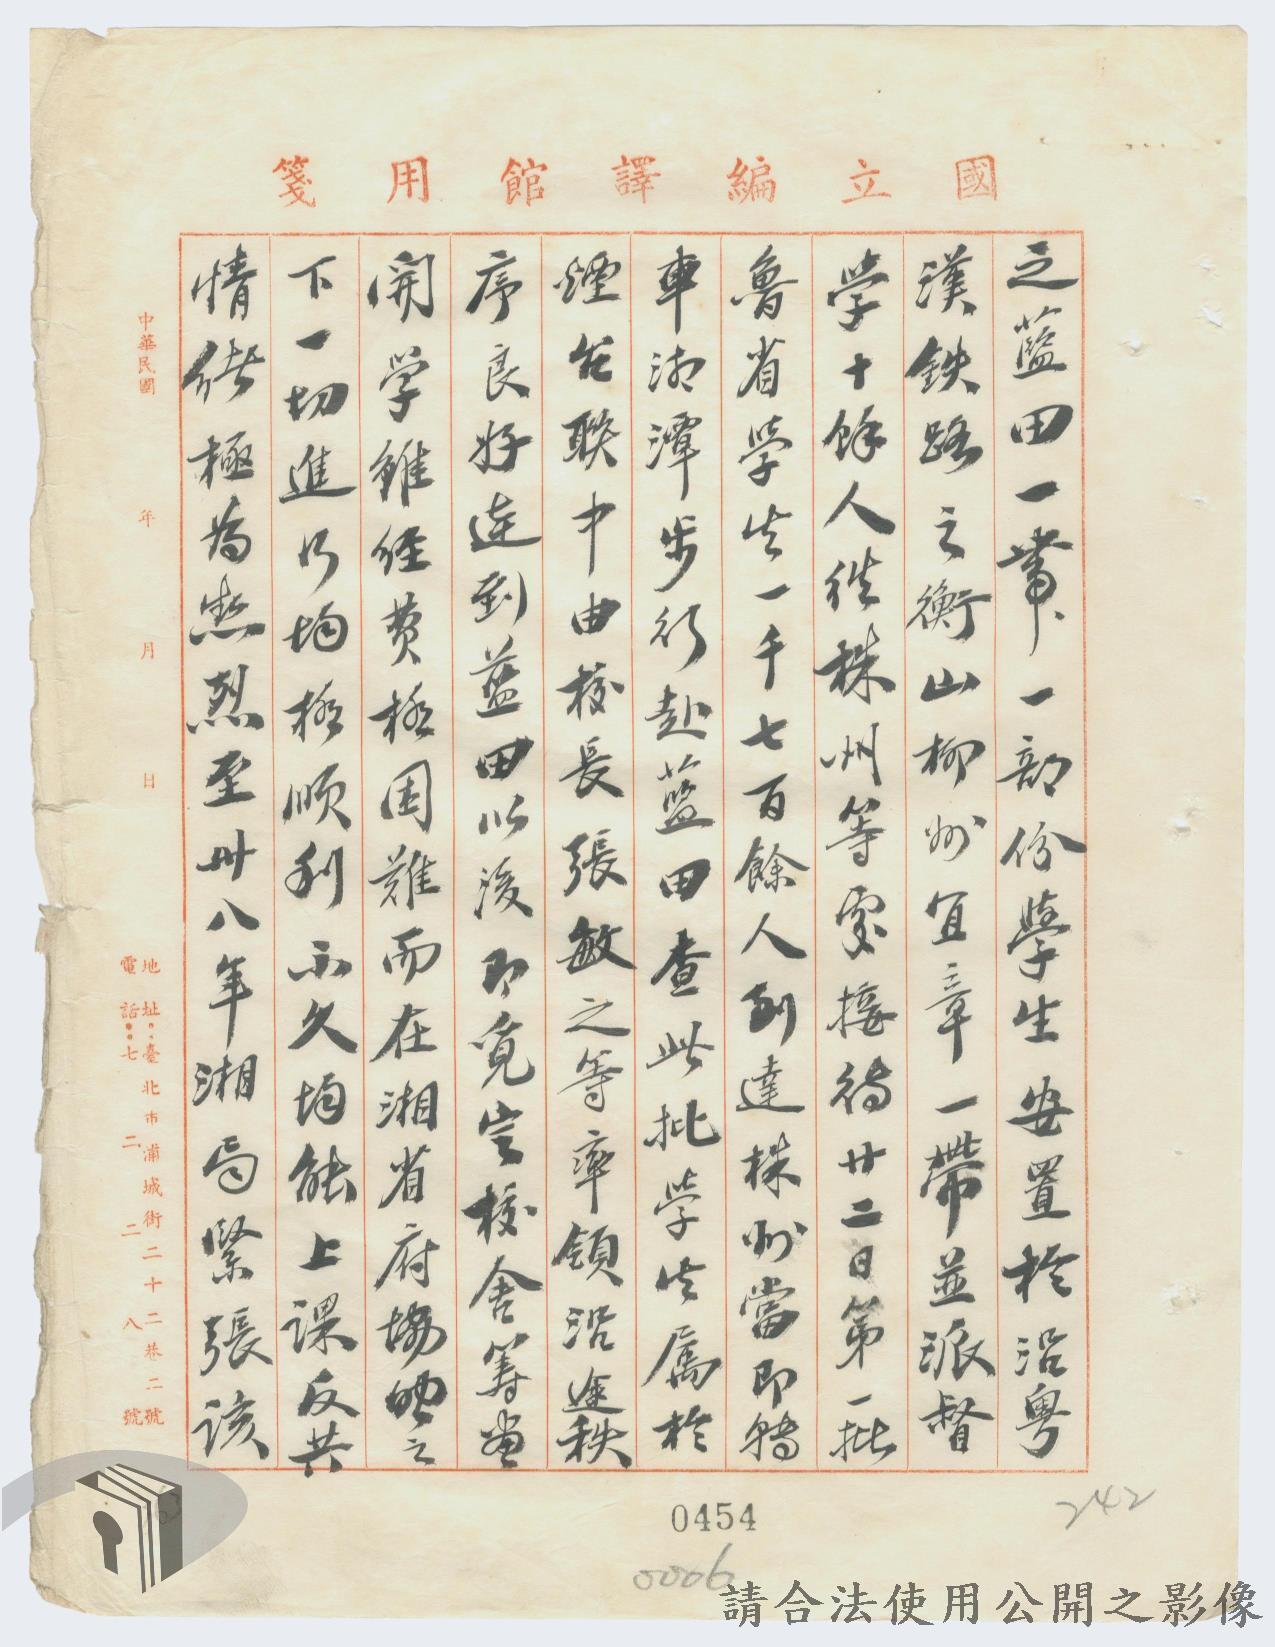 國立編譯館用箋
之藍田一帶、一部份學生安置於沿粵
漢鉄路之衡山柳州宜章一帶並派督
学十餘人往株州等處接待廿二日第一批
魯省学生一千七百餘人到達株州當即轉
車湘潭步行赴藍田查此批学生属於
煙台联中由校長張敏之等率領沿途秩
序良好迨到藍田以後即覓定校舍籌畫
開学雖经费極困難而在湘省府協助之
下一切進行均極順利不久均能上課反共
情緒極為热烈至卅八年湘局緊張该
中華民國 年 月 日
地址：臺北市浦城街二十二巷二號
電話：七二二八號
0454
0006
242
63
請合法使用公開之影像